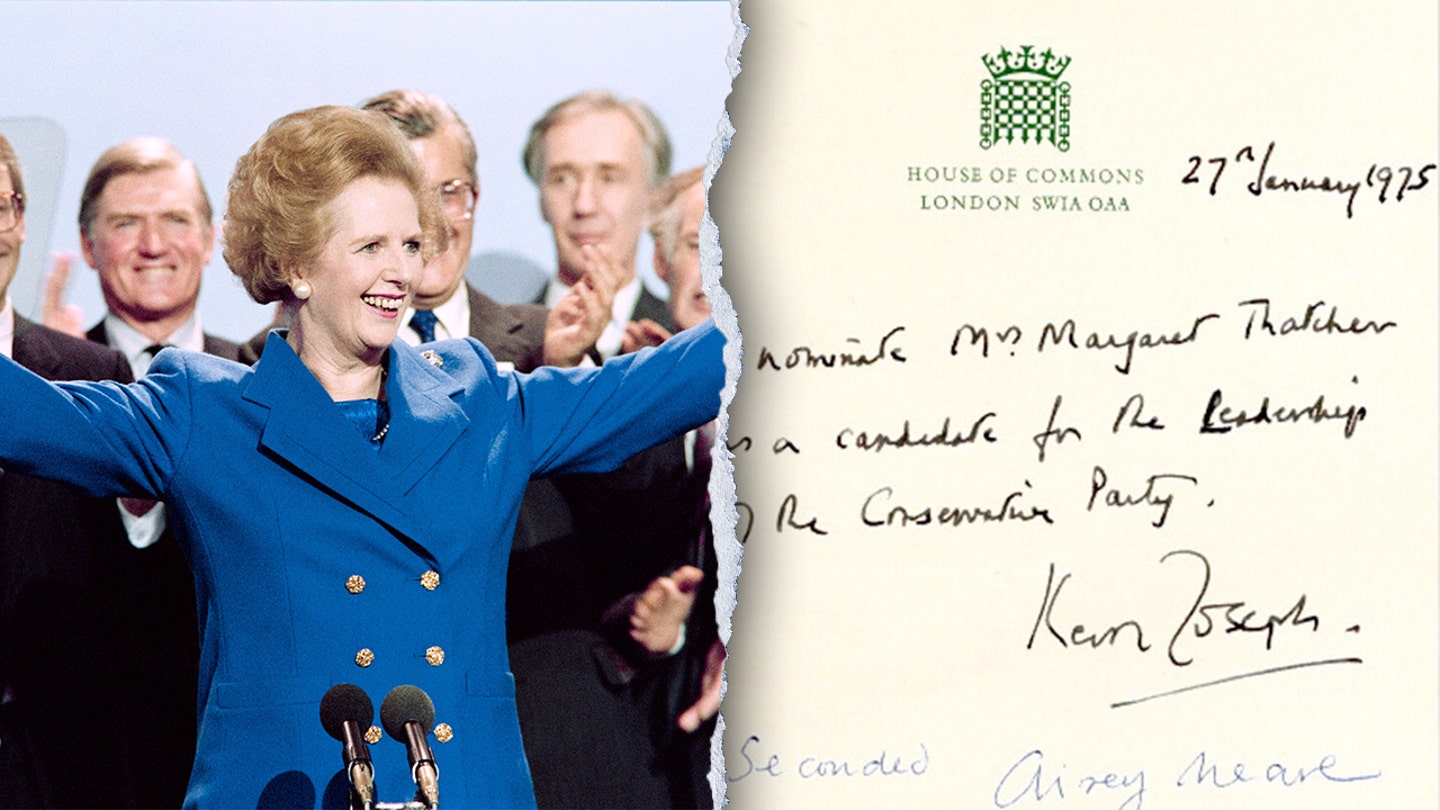 HOUSE OF COMMONS
LONDON SW1A 0AA
27th January 1975
nominate Mrs. Margaret Thatcher
a candidate for the Leadership
the Conservative Party.
Keith Joseph.
Seconded Airey Neave